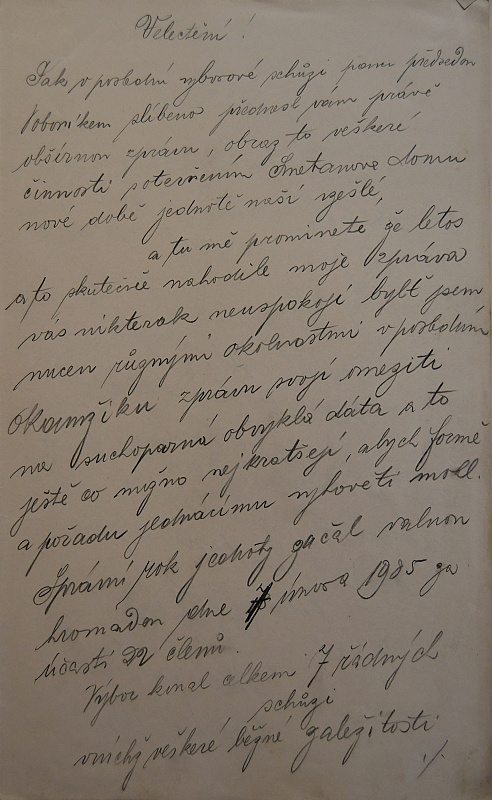 Velectění!
Jak v poslední výborové schůzi panu předsedou
Voborníkem slíbeno přednésl vám právě
obšírnou zprávu, obraz to veškeré
činnosti s otevřením Smetanova domu
nové době jednotě naší vzešlé,
a tu mě prominete že letos
a to skutečně nahodile moje zpráva
vás nikterak neuspokojí bylť jsem
nucen různými okolnostmi v posledním
okamžiku zprávu svojí omeziti
na suchoparná obvyklá dáta a to
ještě co možno nejkratšejí, abych formě
a pořadu jednácímu vyhověti mohl.
Správní rok jednoty začal valnou
hromadou dne 7 února 1985 za
účasti 22 členů.
Výbor konal celkem 7 řádných
schůzi
v nichž veškeré běžné zaležitosti
./.